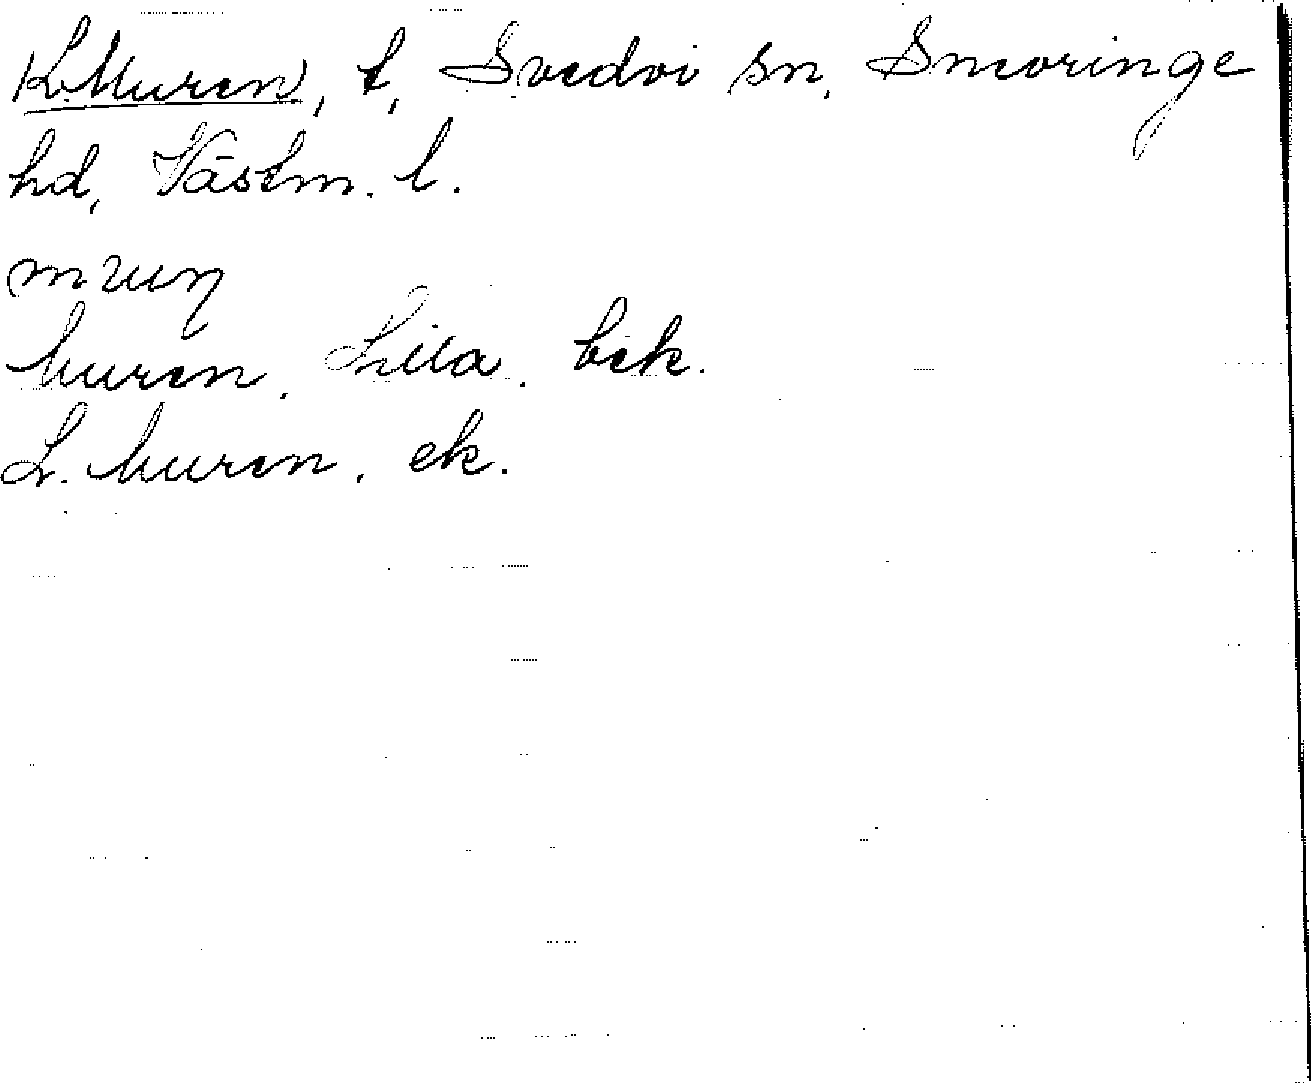 L. Muren, t, Svedvi sn, Snevringe
hd, Västm. l.
Muren, Lilla, bek.
L. Muren, ek.